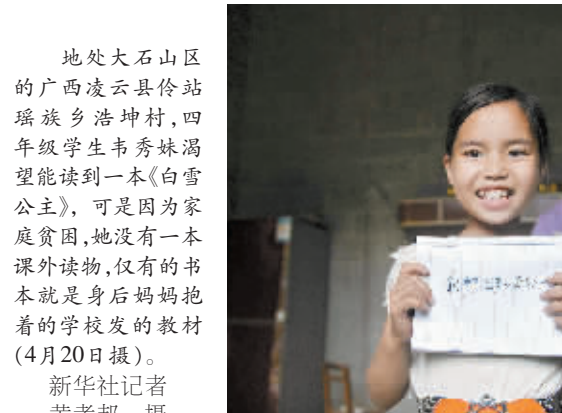 地处大石山区
的广西凌云县伶站
瑶族乡浩坤村,四
年级学生韦秀妹渴
望能读到一本《白雪
公主》，可是因为家
庭贫困,她没有一本
课外读物,仅有的书
本就是身后妈妈抱
着的学校发的教材
(4月20日摄)。
新华社记者